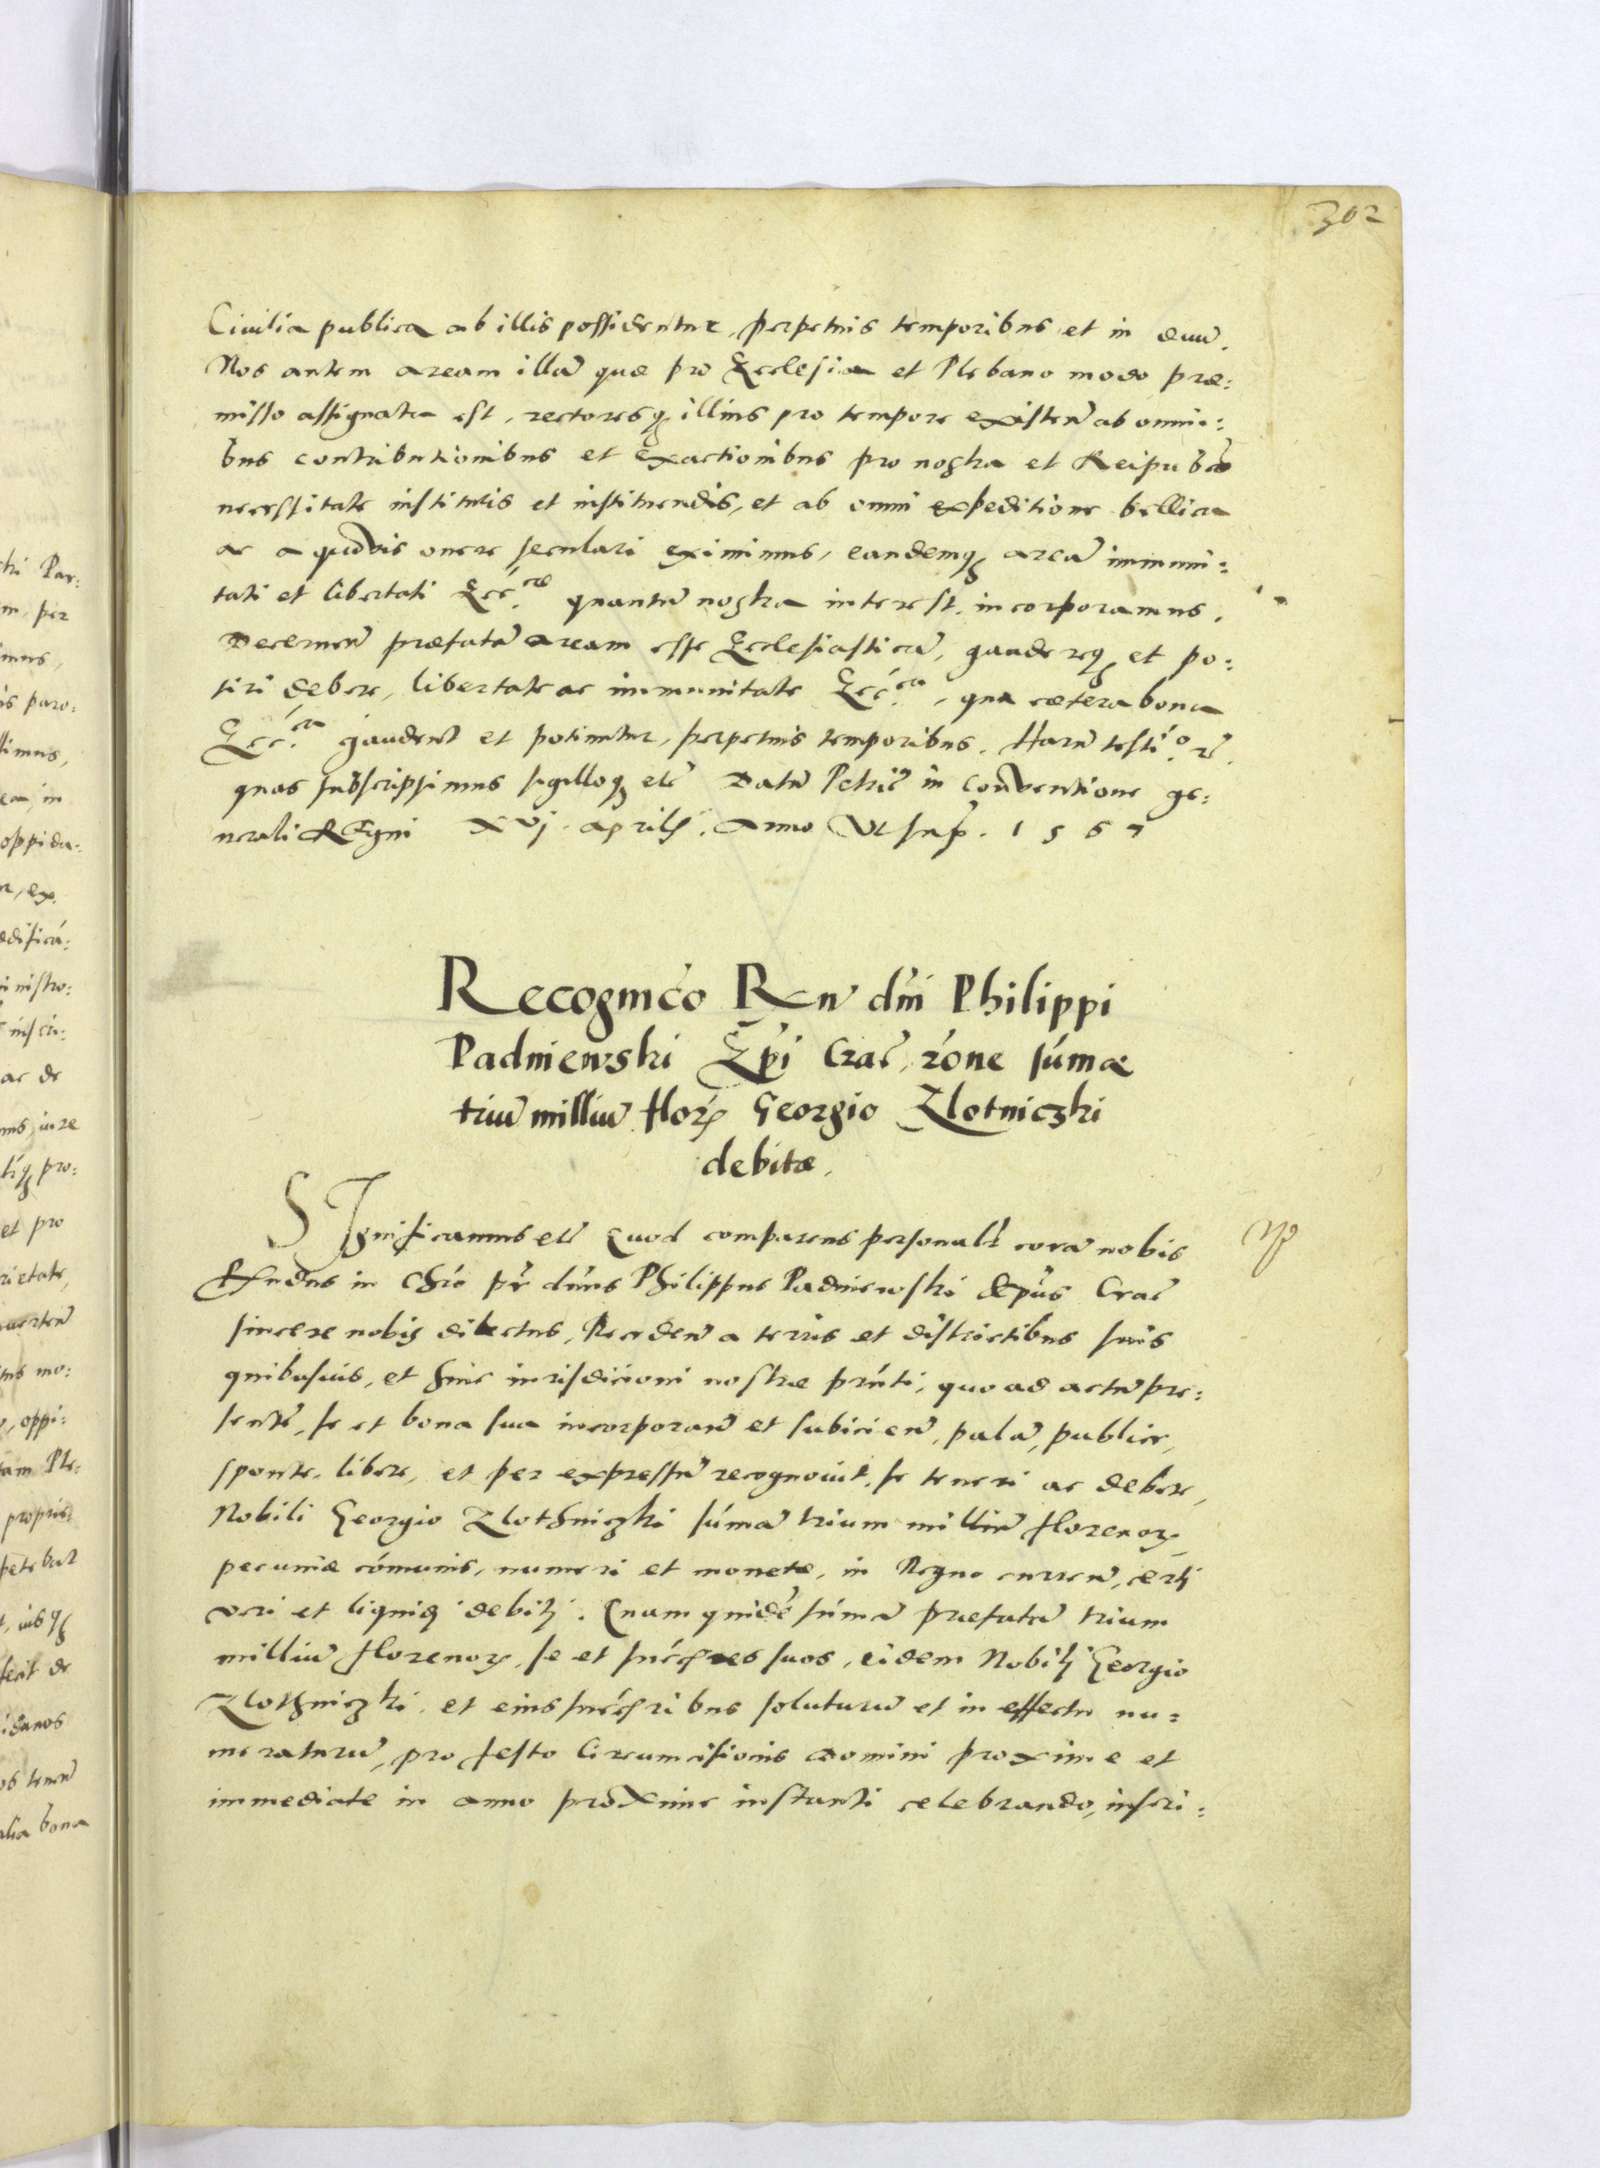 302
Ciuilia publica ab illis possidentur, perpetuis temporibus et in æuũ.
Nos autem aream illã quæ pro Ecclesia et Plebano modo præ:
misso assignata est, rectoresq3 illius pro tempore existen̄ ab omni:
bus contributionibus et exactionibus pro nostra et Reipub
necessitate institutis et instituendis, et ab omni expeditione bellica
ac a quouis onere seculari eximimus, eandemq3 areã immuni:
tati et libertati Ecc.cæ quantũ nostra interest, incorporamus,
Decernen̄ præfatã aream esse Ecclesiasticã, gaudereq3 et po:
tiri debere, libertate ac immunitate Ecc.ca, qua cætera bona
Ecc.ca gauden̄t et potiuntur, perpetuis temporibus. Harũ testi.o r̃.
quas subscripsimus sigilloq3 etc̃ Datũ Petric̃ in Conuentione ge:
nerali Regni xvj. aprilis. Anno Vt sup. 1567
Recognic̃o Ren̄ dñi Philippi
Padniewski Ep̃i Crac̃, r̃one sum̃æ
triũ milliũ flor3 Georgio Zlotniczki
debitæ.
SIgnificamus etc̃ Quod comparens personalr̃ corã nobis
Rx̃ndus in Chr̃o pr̃ dñus Philippus Padniewski Ep̃us Crac̃
sincere nobis dilectus, Receden̄ a terris et districtibus suis
quibusuis, et huic iurisdicioni nostræ prñti, quo ad actũ pre:
sentẽ, se et bona sua incorporan̄ et subicien̄, palã, publice,
sponte, libere, et per expressũ recognouit, se teneri ac debere,
Nobili Georgio Zlothniczki sum̃ã trium milliũ florenor3
pecuniæ com̃unis, numeri et monetæ, in Regno curren̄, certi
veri et liquidi debiti. Quam quidẽ sum̃ã præfatã trium
milliũ florenor3, se et succ̃res suos, eidem Nobili Georgio
Zlothniczki, et eius succ̃ribus soluturũ et in effectu nu:
meraturũ, pro festo Circumcisionis Domini proxime et
immediate in anno proxime instanti celebrando, inscri: